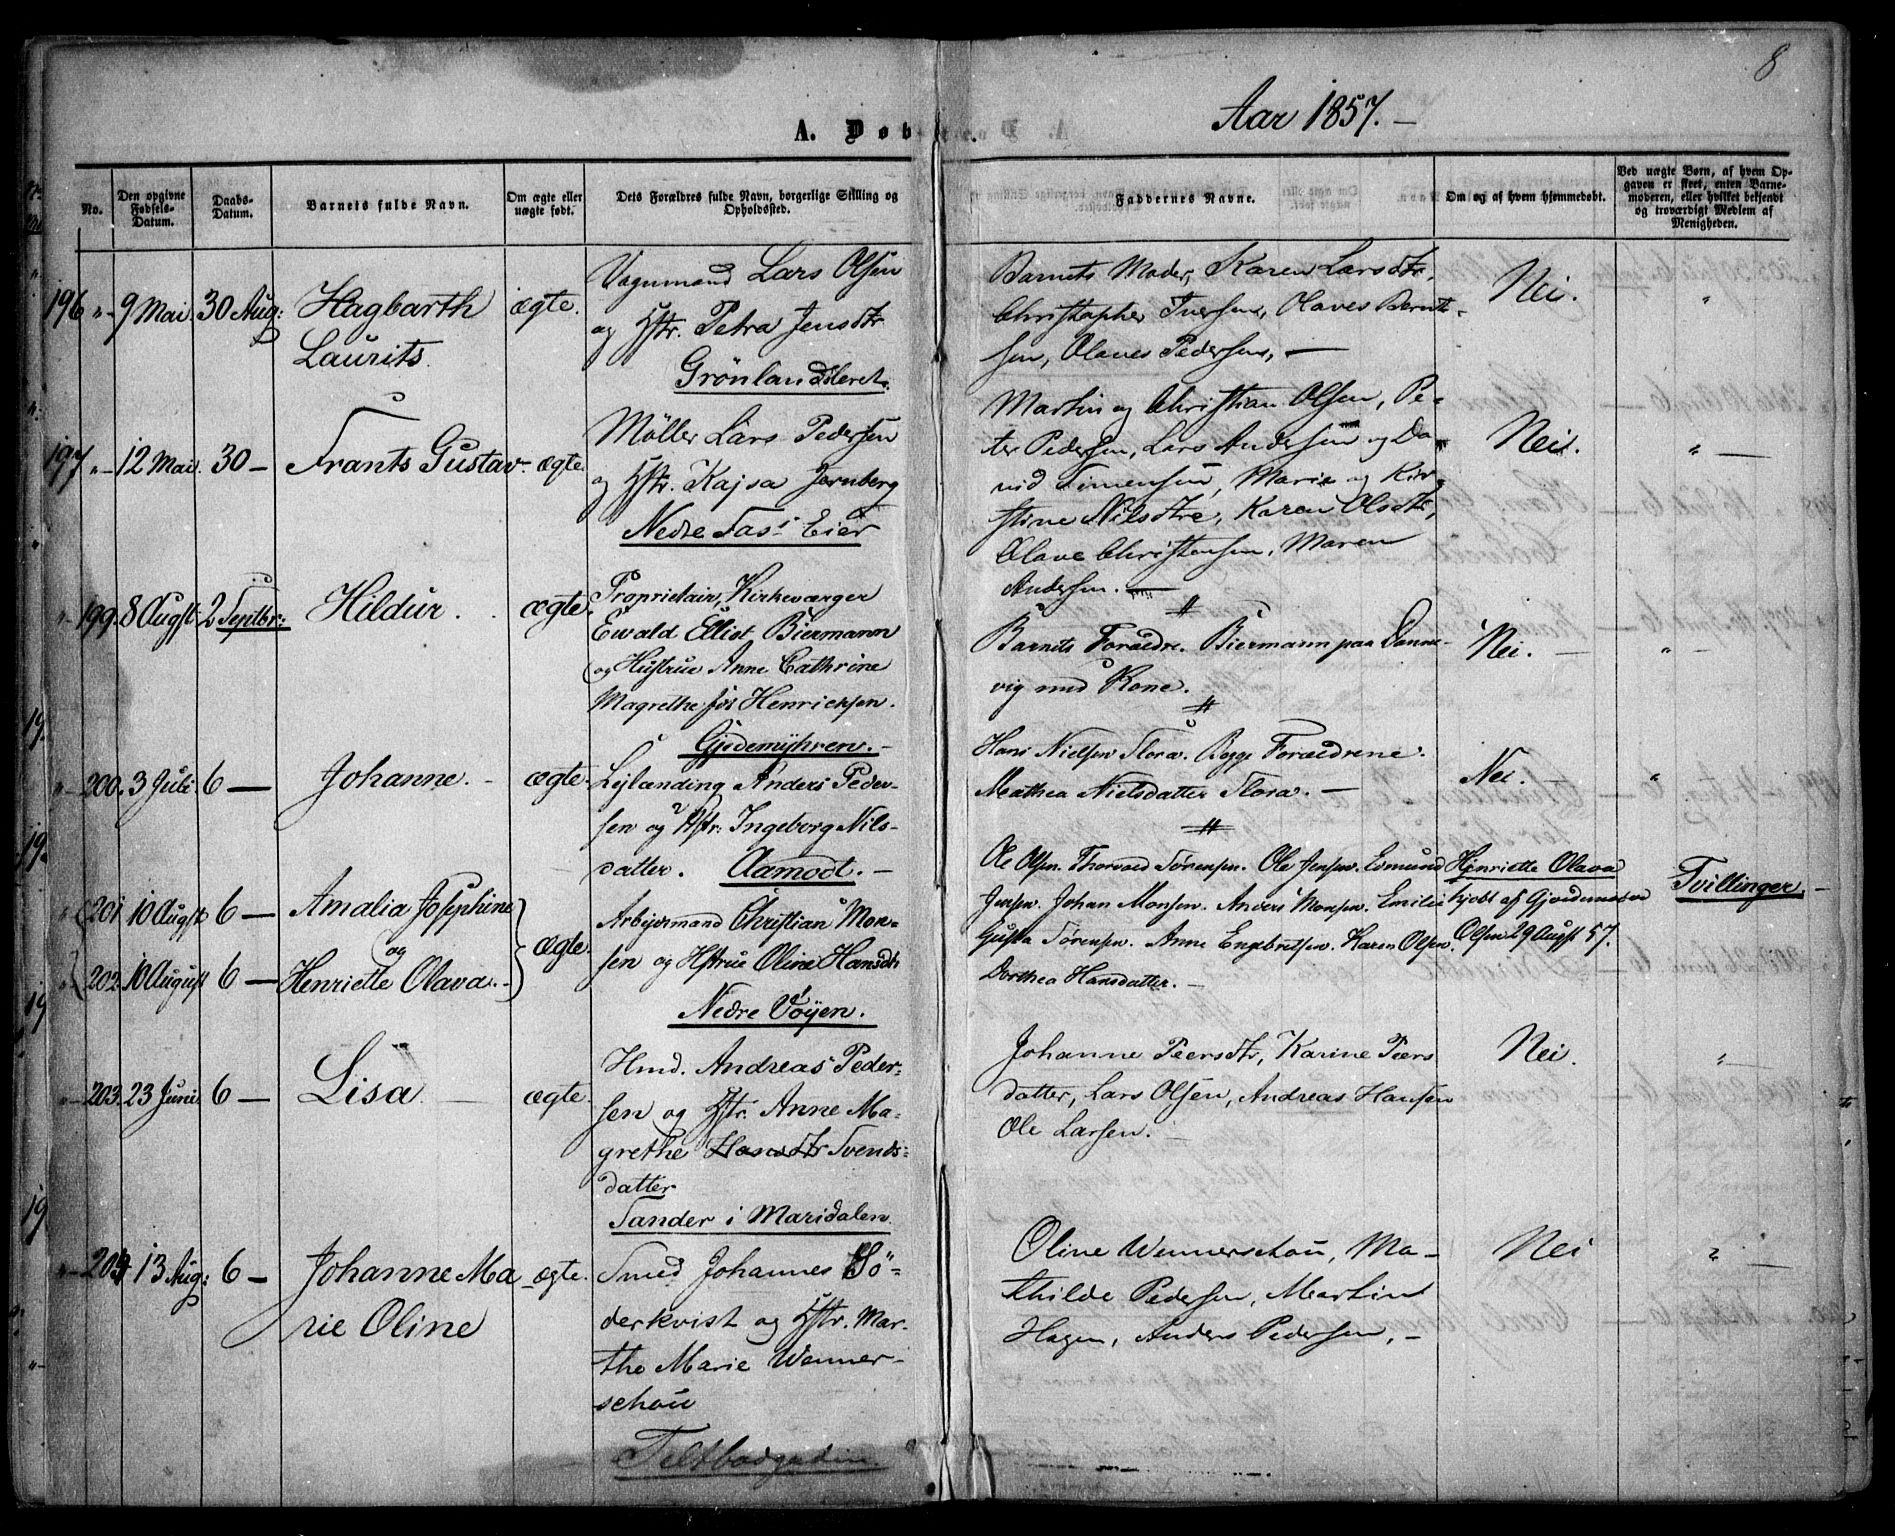 8
Aar 1857. —
A. Døbte.
No.
Den opgivne Fødsels-Datum.
Daabs-Datum.
Barnets fulde Navn.
Om ægte eller uægte født.
Dets Forældres fulde Navn, borgerlige Stilling og Opholdssted.
Faddernes Navne.
Om og af hvem hjemmedøbt.
Ved uægte Børn, af hvem Opgaven er skeet, enten Barnemoderen, eller hvilket bekjendt og troværdigt Medlem af Menigheden.
196 " 9 Mai 30 Aug: Hagbarth
Laurits.
ægte.
Vognmand Lars Olsen
og Hstr. Petra Jensdtr
Grönlandsleret.
Barnets Moder, Karen Larsdtr,
Christopher Iversen, Olaves Bernt-
sen, Olaves Pedersen, —
Nei.
"
197 " 12 Mai. 30 — Frants Gustav. ægte.
Møller Lars Pedersen
og Hstr. Kajsa Jernberg
Nedre Fas: Eier
Martin og Christian Olsen, Pe-
ter Pedersen, Lars Andersen og Da-
vid Simensen, Marie og Kir-
stine Nilsdtre, Karen Olsdtr,
Olave Christensen, Maren
Andersen. —
Nei.
" —
199. 8 Augst 2 Septbr: Hildur. ægte.
Proprietair, Kirkeværger
Ewald Ellist Biermann
og Hustrue Anne Cathrine
Magrethe fös Henricksen.
Gjödemyhren. —
Barnets Forældre. Biermann paa Danne-
vig med Kone.
Nei. —
" —
200. 3 Juli 6 — Johanne. ægte.
Lejlænding Anders Peder-
sen og Hstr: Ingeborg Nils-
datter. Aamodt. —
Hans Nielsen Flora. Begge Forældrene.
Mathea Nielsdatter Flora. —
Nei.
"
201 10 Augst 6 — Amalia Josephine
og
202. 10 August 6 — Henriette Olava. ægte.
Arbejdsmand Christian Mon-
sen og Hstrue Oline Hansdtr
Nedre Vöyen.
Ole Olsen. Thorvald Sörensen. Ole Jensen. Edmund
Jensen. Johan Monsen. Anders Monsen. Emilie
Gusta Sörensen. Anne Engebretsen. Karen Olsen.
Dorthea Hansdatter. —
Henriette Olava
hjdbt af Gjordemoder
Olsen 29 Augst 57.
Tvillinger —
203. 23 Juni 6 — Lisa. — ægte.
Hmd. Andreas Peder-
sen og Hstr. Anne Ma-
grethe Hansdtr Svends-
datter
Sander i Maridalen.
Johanne Peersdtr, Karine Peers
datter, Lars Olsen, Andreas Hansen
Ole Larsen. —
Nei.
"
204 13 Aug: 6 — Johanne Ma
rie Oline
ægte.
Smed Johannes Sö-
derkvist og Hstr. Mar-
the Marie Wenner-
schou
Feltbodgaden.
Oline Wennerschou, Ma-
thilde Pedersen, Martin
Hagen, Anders Pedersen, —
Nei
"